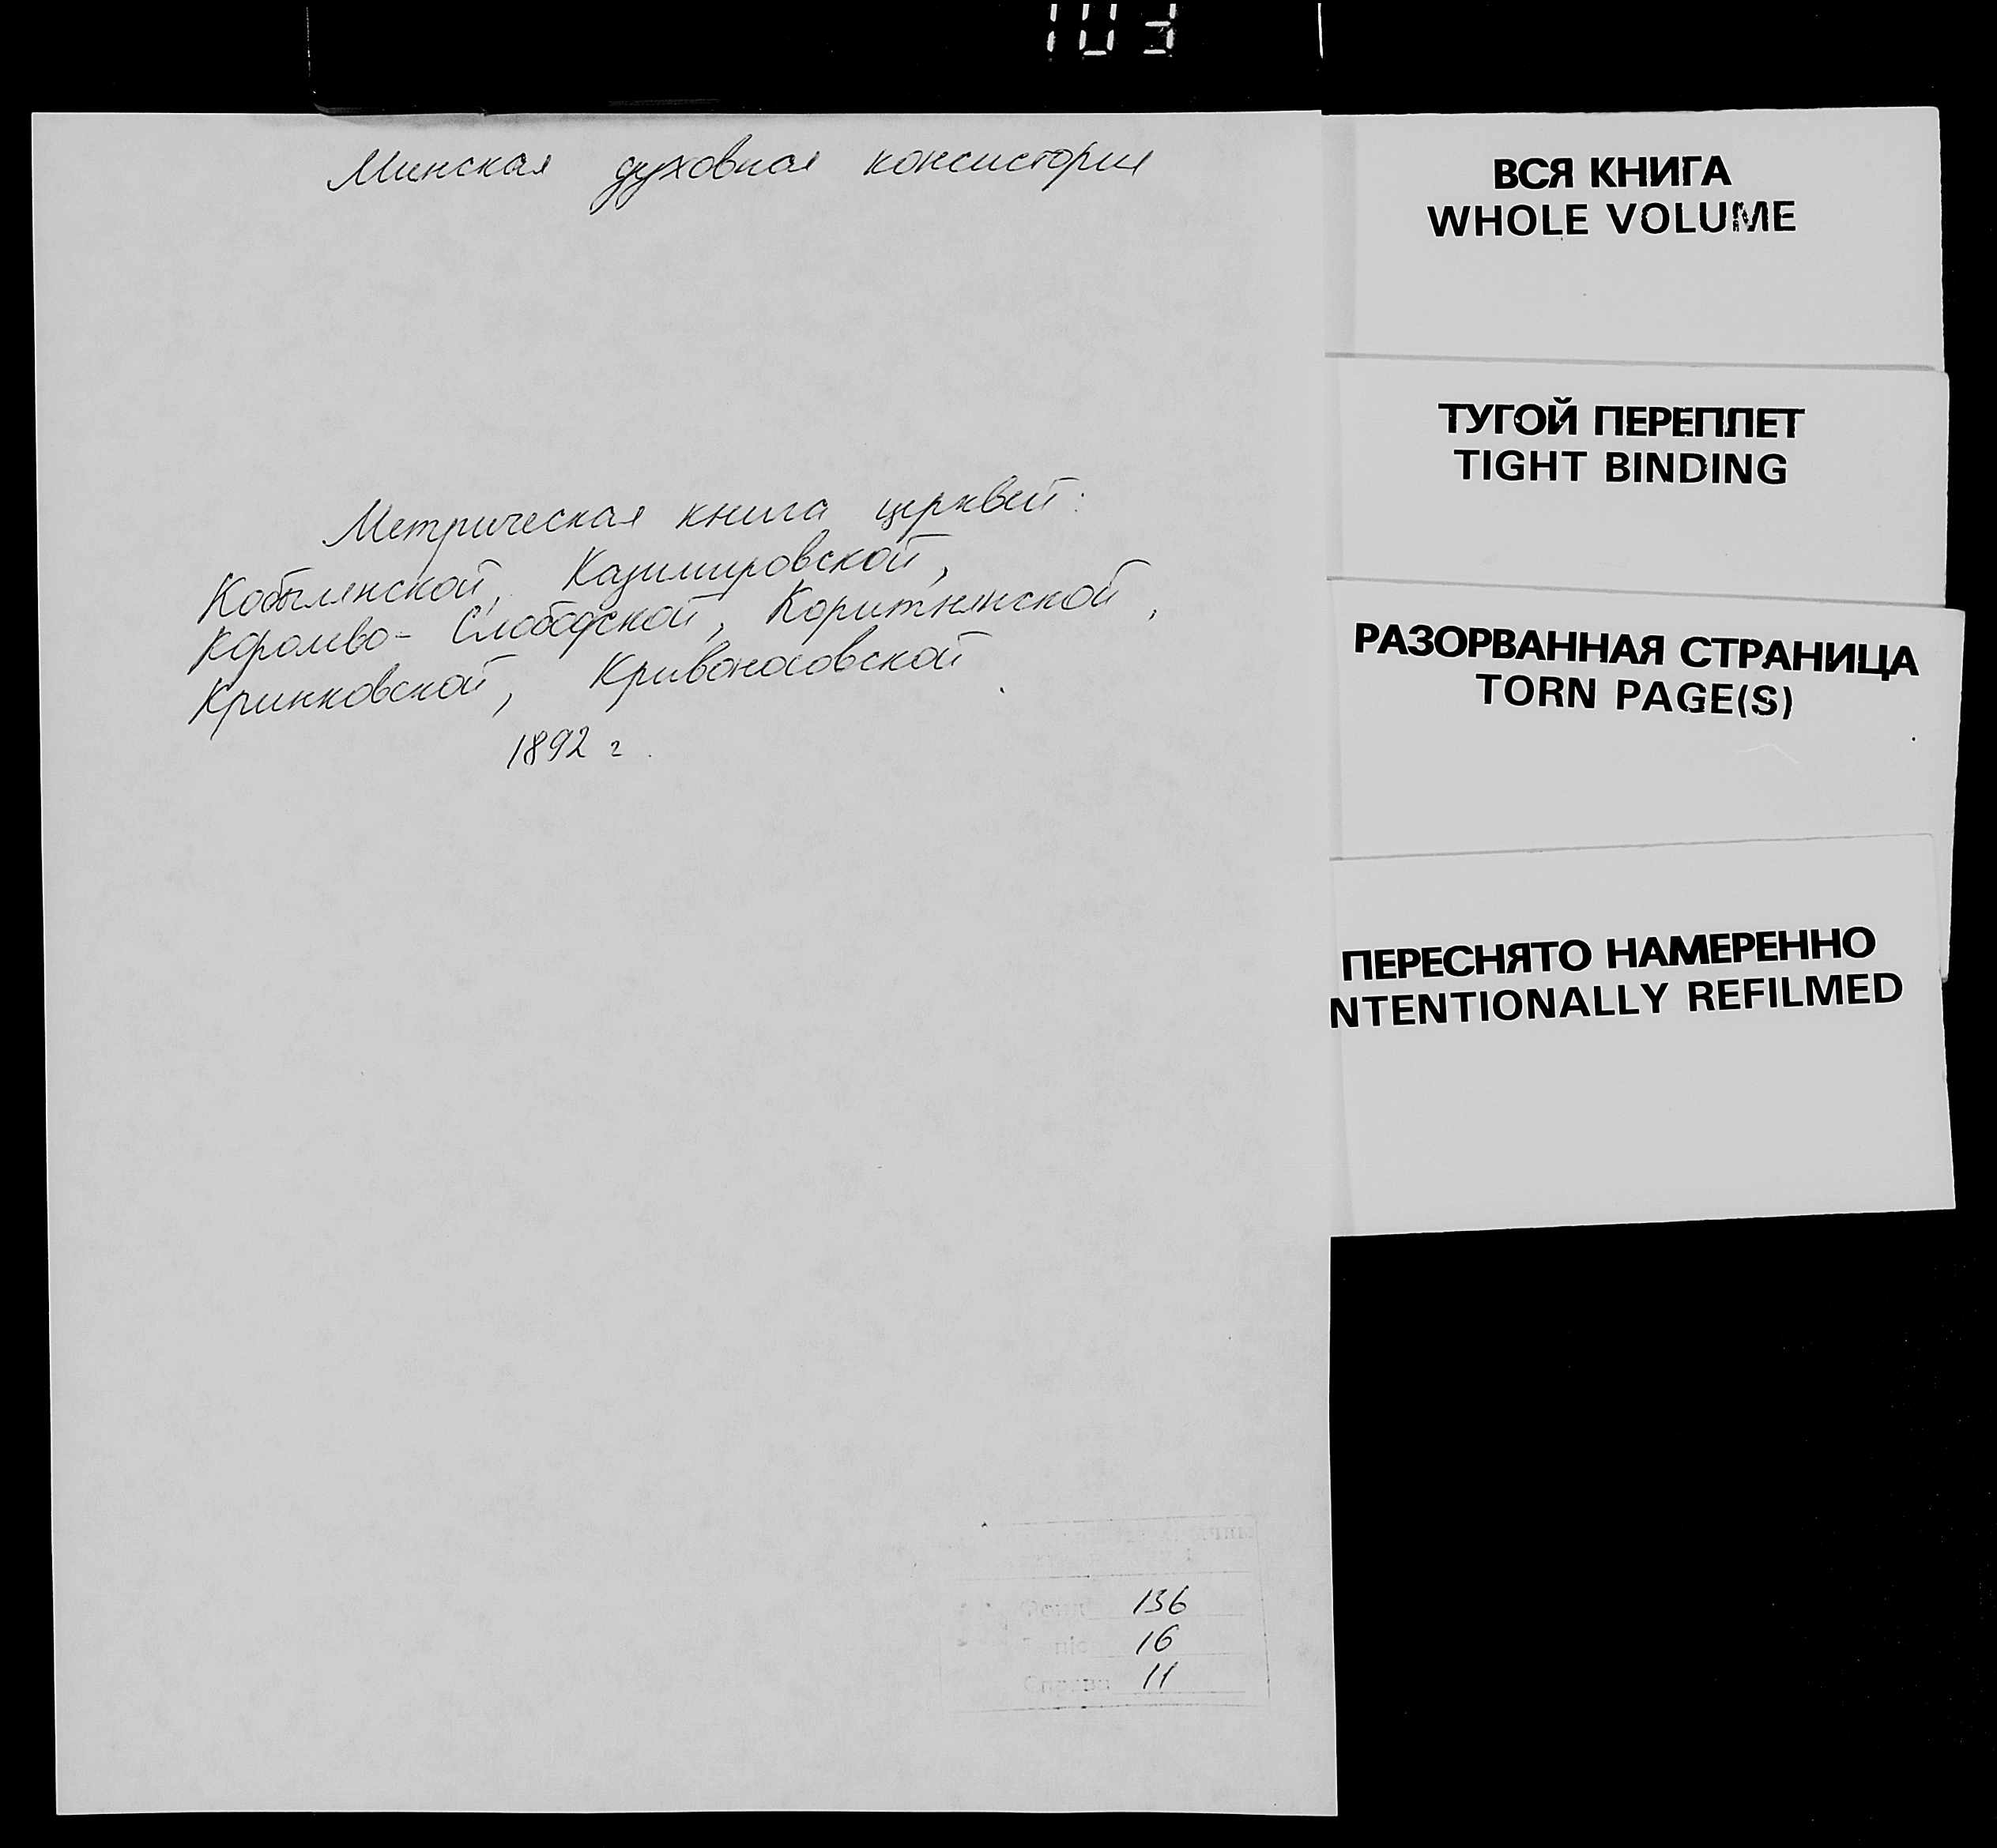 103
Минская духовная консистория
Метрическая книга церквей:
Кобылянской, Казимировской,
Королево-Слободской, Коритнянской,
Кринковской, Кривоносовской.
1892 г.
136
16
Справа 11
ВСЯ КНИГА
WHOLE VOLUME
ТУГОЙ ПЕРЕПЛЕТ
TIGHT BINDING
РАЗОРВАННАЯ СТРАНИЦА
TORN PAGE(S)
ПЕРЕСНЯТО НАМЕРЕННО
NTENTIONALLY REFILMED